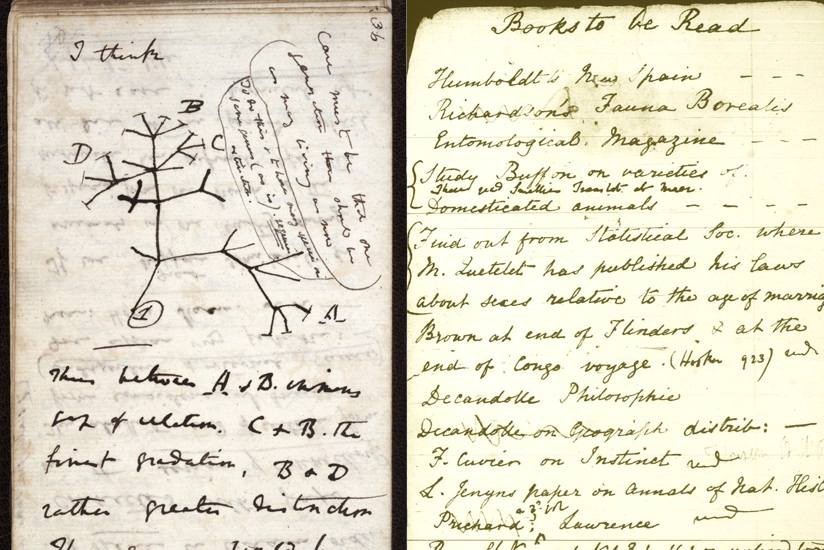 36
I think
Case must be that one
generation then should be
as many living as now
To do this & to have many species in
same genus (as is). requires
extinction.
B
C
D
A
1
Thus between A & B. immens
gap of relation. C & B. the
finest gradation, B & D
rather greater distinction
Books to be Read
Humboldt's New Spain - - -
Richardson's Fauna Borealis
Entomological. Magazine - - -
Study Buffon on varieties of.
Domesticated animals - - - -
Find out from Statistical Soc. where
M. Quetelet has published his laws
about sexes relative to the age of marriag
Brown at end of Flinders & at the
end of Congo voyage. (Hooker 923) read
Decandolle Philosophie
Decandolle on Geograph distrib: —
F. Cuvier on Instinct read
L. Jenyns paper on Annals of Nat. Hist
Prichard Lawrence read